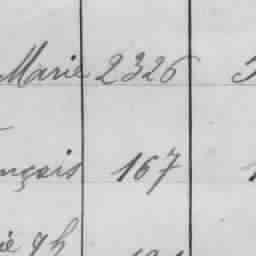 Marie 2326
nçois 167
ie 9h